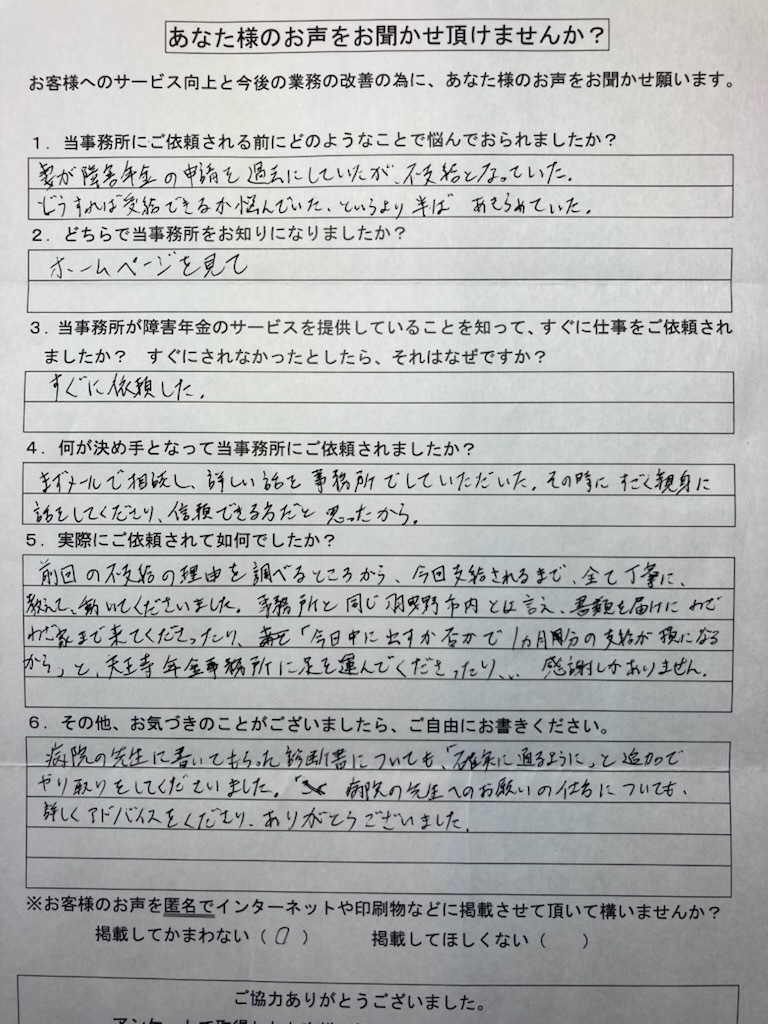 あなた様のお声をお聞かせ頂けませんか？
お客様へのサービス向上と今後の業務の改善の為に、あなた様のお声をお聞かせ願います。
１．当事務所にご依頼される前にどのようなことで悩んでおられましたか？
妻が障害年金の申請を過去にしていたが、不支給となっていた。
どうすれば受給できるか悩んでいた、というより半ば あきらめていた。
２．どちらで当事務所をお知りになりましたか？
ホームページを見て
３．当事務所が障害年金のサービスを提供していることを知って、すぐに仕事をご依頼され
ましたか？ すぐにされなかったとしたら、それはなぜですか？
すぐに依頼した。
４．何が決め手となって当事務所にご依頼されましたか？
まずメールで相談し、詳しい話を事務所でしていただいた。その時にすごく親身に
話をしてくださり、信頼できる方だと思ったから。
５．実際にご依頼されて如何でしたか？
前回の不支給の理由を調べるところから、今回支給されるまで、全て丁寧に、
教えて、動いてくださいました。事務所と同じ羽曳野市内とは言え、書類を届けにわざ
わざ家まで来てくださったり、「今日中に出すか否かで1ヵ月分の支給が損になる
から」と、天王寺年金事務所に足を運んでくださったり、、、 感謝しかありません。
６．その他、お気づきのことがございましたら、ご自由にお書きください。
病院の先生に書いてもらった診断書についても、「確実に通るように」と追加で
やり取りをしてくださいました。 病院の先生へのお願いの仕方についても、
詳しくアドバイスをくださり、ありがとうございました。
※お客様のお声を匿名でインターネットや印刷物などに掲載させて頂いて構いませんか？
掲載してかまわない（ 〇 ） 掲載してほしくない（ ）
ご協力ありがとうございました。